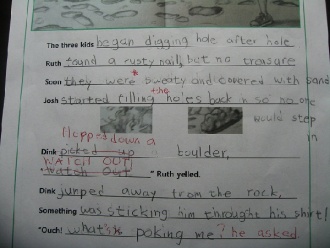 The three kids began digging hole after hole
Ruth found a rusty nail, but no treasure
Soon they were sweaty and covered with sand
Josh started filling the holes back in so no one
would step
in
flopped down a
Dink picked up boulder,
WATCH OUT!
"Watch Out" Ruth yelled.
Dink jumped away from the rock,
Something was sticking him throught his shirt!
"Ouch! what's poking me? he asked